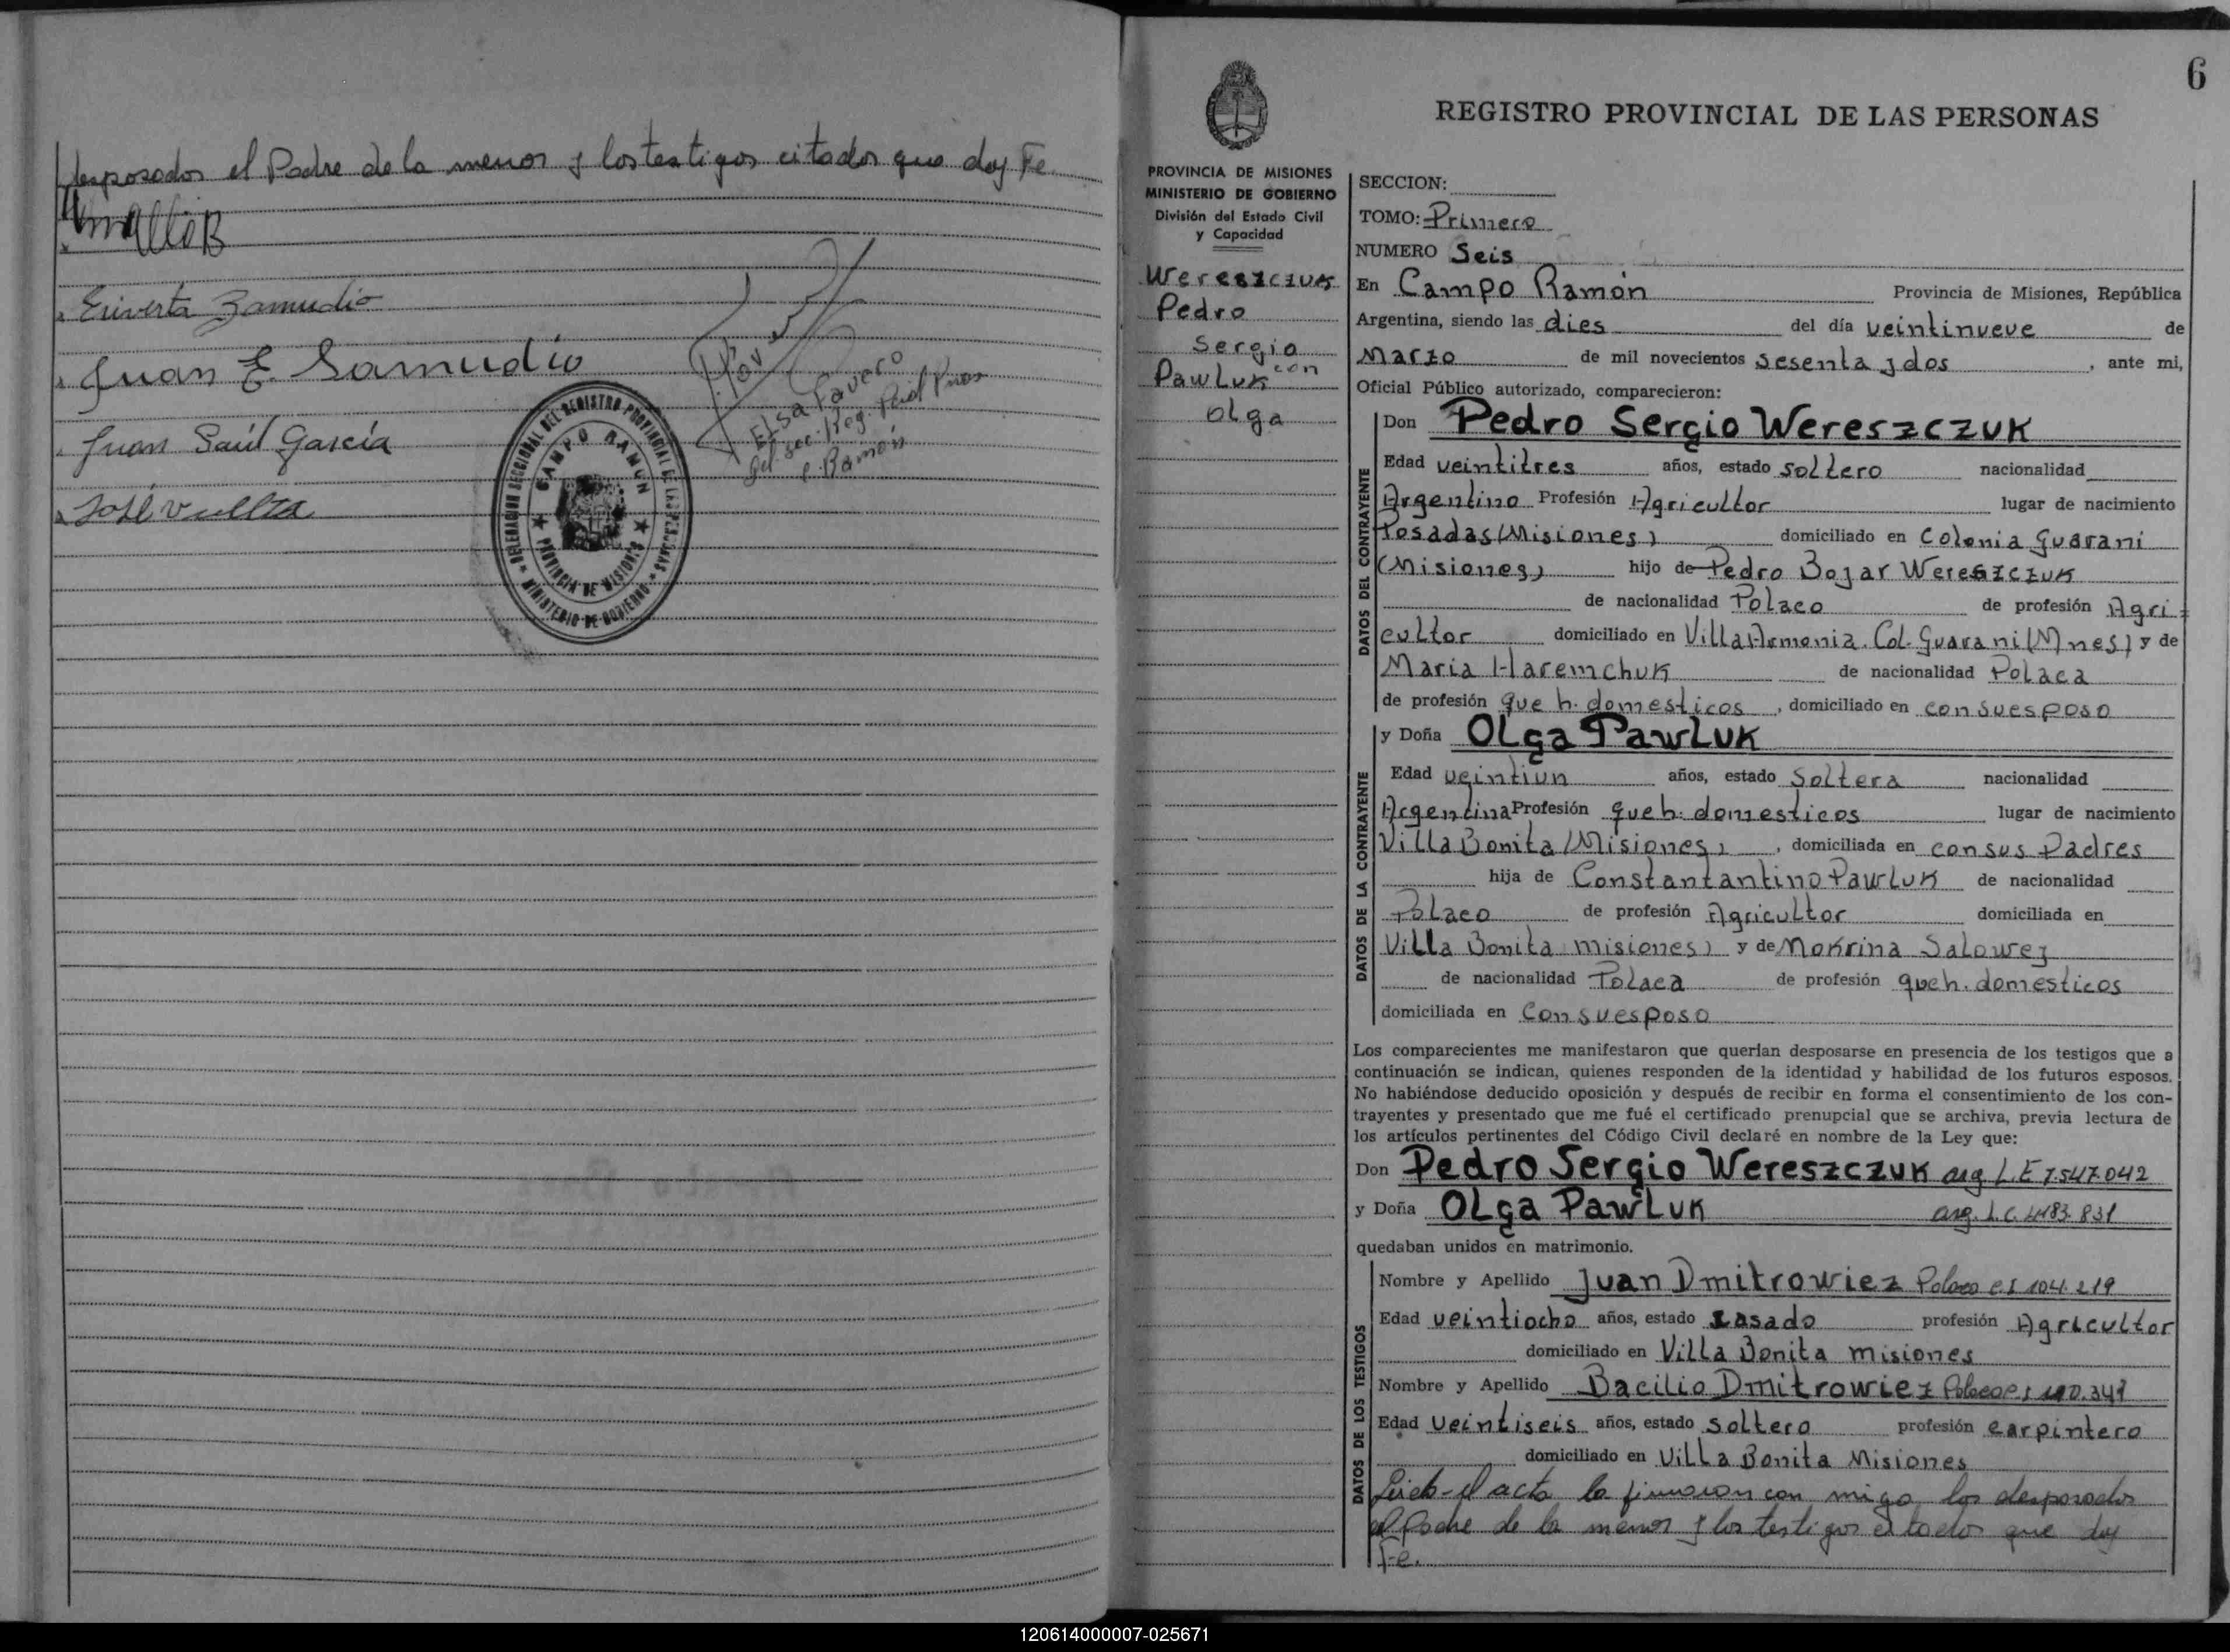 desposados el Padre de la menor y los testigos citados que doy Fe.
Eriverta Zamudio
Juan E. Samudio
Juan Saúl García
José Vuelta
Elsa Favero
C. Ramón
DELEGACION SECCIONAL DEL REGISTRO PROVINCIAL DE LAS PERSONAS
CAMPO RAMON
PROVINCIA DE MISIONES
MINISTERIO DE GOBIERNO
6
REGISTRO PROVINCIAL DE LAS PERSONAS
PROVINCIA DE MISIONES
MINISTERIO DE GOBIERNO
División del Estado Civil
y Capacidad
Wereszczuk
Pedro
Sergio
con
Pawluk
Olga
SECCION:
TOMO: Primero
NUMERO Seis
En Campo Ramón Provincia de Misiones, República
Argentina, siendo las dies del día veintinueve de
Marzo de mil novecientos sesenta y dos, ante mi,
Oficial Público autorizado, comparecieron:
DATOS DEL CONTRAYENTE
Don Pedro Sergio Wereszczuk
Edad veintitres años, estado soltero nacionalidad
Argentino Profesión Agricultor lugar de nacimiento
Posadas (Misiones) domiciliado en Colonia Guarani
(Misiones) hijo de Pedro Bojar Wereszczuk
de nacionalidad Polaco de profesión Agri=
cultor domiciliado en Villa Armonia. Col. Guarani (Mnes) y de
Maria Haremchuk de nacionalidad Polaca
de profesión que h. domesticos, domiciliado en con su esposo
DATOS DE LA CONTRAYENTE
y Doña Olga Pawluk
Edad veintiun años, estado Soltera nacionalidad
Argentina Profesión queh. domesticos lugar de nacimiento
Villa Bonita (Misiones), domiciliada en con sus Padres
hija de Constantantino Pawluk de nacionalidad
Polaco de profesión Agricultor domiciliada en
Villa Bonita misiones) y de Mokrina Salowez
de nacionalidad Polaca de profesión queh. domesticos
domiciliada en Con su esposo
Los comparecientes me manifestaron que querían desposarse en presencia de los testigos que a
continuación se indican, quienes responden de la identidad y habilidad de los futuros esposos.
No habiéndose deducido oposición y después de recibir en forma el consentimiento de los con-
trayentes y presentado que me fué el certificado prenupcial que se archiva, previa lectura de
los artículos pertinentes del Código Civil declaré en nombre de la Ley que:
Don Pedro Sergio Wereszczuk arg L.E 7.547.042
y Doña Olga Pawluk arg. L.C. 4.183.831
quedaban unidos en matrimonio.
DATOS DE LOS TESTIGOS
Nombre y Apellido Juan Dmitrowiez Polaco C.I 104.219
Edad veintiocho años, estado casado profesión Agricultor
domiciliado en Villa Bonita misiones
Nombre y Apellido Bacilio Dmitrowiez Polaco
Edad veintiseis años, estado soltero profesión carpintero
domiciliado en Villa Bonita Misiones
Leida el acta la firmaron con migo los desposados
el Padre de la menor y los testigos citados que doy
Fe.
120614000007-025671